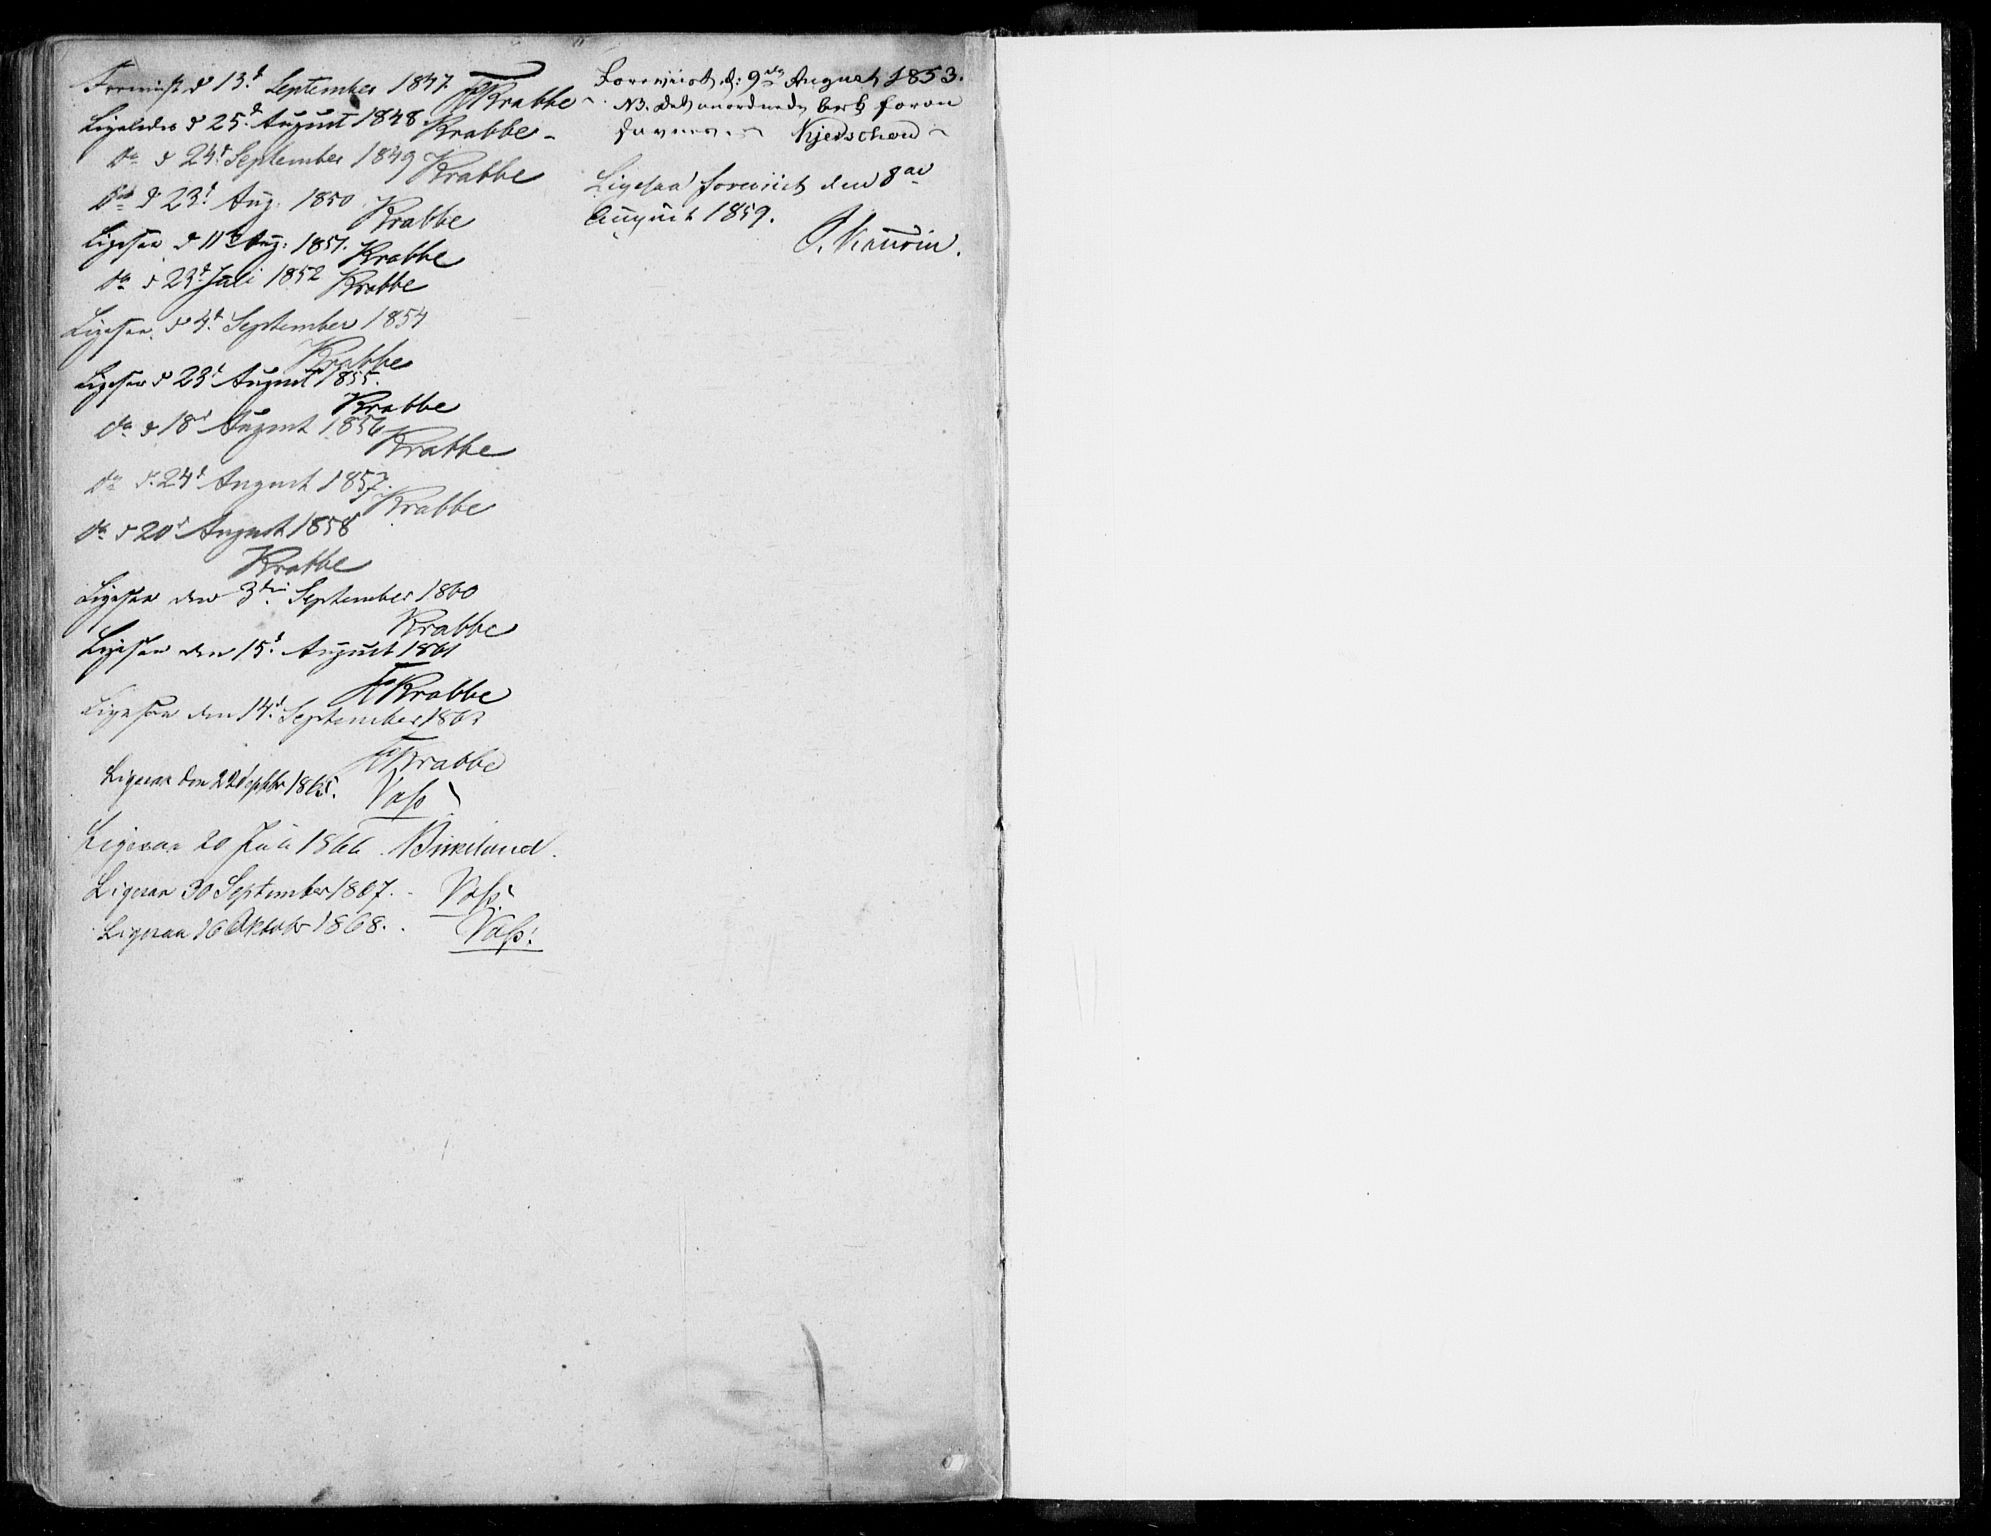 Foreviist d 13d September 1847. FKrabbe
Ligeledes d 25d August 1848. Krabbe
do d 24d September 1849 Krabbe
do d. 23d Aug. 1850 Krabbe
Ligesaa d 11te Aug: 1851. Krabbe
do d 23d Juli 1852 Krabbe
Ligesaa d 4d September 1854
Krabbe
Ligesaa d 23d August 1855.
Krabbe
do d 18d August 1856
Krabbe
do d. 24d August 1857.
Krabbe
do d 20d August 1858
Krabbe
Ligesaa den 3die September 1860
Krabbe
Ligesaa den 15d August 1861
FKrabbe
Ligesaa den 14d September 1863
FKrabbe
Ligesaa den 22 Septbr 1865. Vass
Ligesaa 20 Juli 1866. Birkeland.
Ligesaa 30 September 1867. Vass.
Ligesaa 16 Oktober 1868. Vass.
Foreviist d: 9de August 1853.
NB. Det anordnede foran
Kjerschow
Ligesaa foreviist den 8de
August 1859.